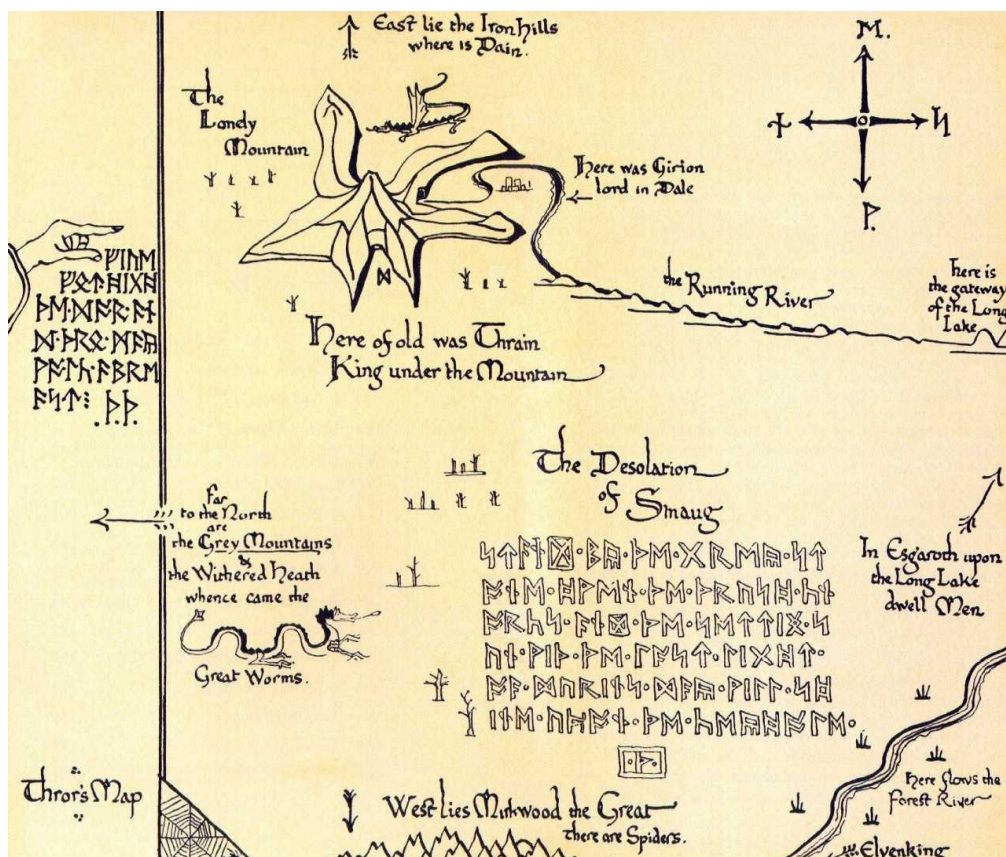 East lie the Iron Hills
where is Dain.
The
Lonely
Mountain
ᛖ.
ᛏ
ᛋ
ᚹ.
Here was Girion
lord in Dale
ᚠᛁᚢᛖ
ᚠᛟᛏ·ᚻᛁᚷᚻ
ᚦᛖ·ᛞᚩᚱ·ᚪᚾ
ᛞ·ᚦᚱᛟ·ᛗᚪᚣ
ᚹᚪᛚᚳ·ᚪᛒᚱᛖ
ᚪᛋᛏ⁝ .ᚦ.ᚦ.
ᛞ
the Running River
here is
the gateway
of the Long
Lake
Here of old was Thrain
King under the Mountain
The Desolation
of Smaug
Far
to the North
are
the Grey Mountains
&
the Withered Heath
whence came the
Great Worms.
In Esgaroth upon
the Long Lake
dwell Men
ᛋᛏᚪᚾᛞ·ᛒᚣ·ᚦᛖ·ᚷᚱᛖᚣ·ᛋᛏ
ᚩᚾᛖ·ᚻᚹᛖᚾ·ᚦᛖ·ᚦᚱᚢᛋᚻ·ᚳᚾ
ᚩᚳᚳᛋ·ᚪᚾᛞ·ᚦᛖ·ᛋᛖᛏᛏᛁᛝ·ᛋ
ᚢᚾ·ᚹᛁᚦ·ᚦᛖ·ᛚᚪᛋᛏ·ᛚᛁᚷᚻᛏ·
ᚩᚠ·ᛞᚢᚱᛁᚾᛋ·ᛞᚪᚣ·ᚹᛁᛚᛚ·ᛋᚻ
ᛁᚾᛖ·ᚢᛈᚩᚾ·ᚦᛖ·ᚳᛖᚣᚻᚩᛚᛖ·
·ᚦ·
Thror's Map
West lies Mirkwood the Great
there are Spiders.
Here flows the
Forest River
Elvenking